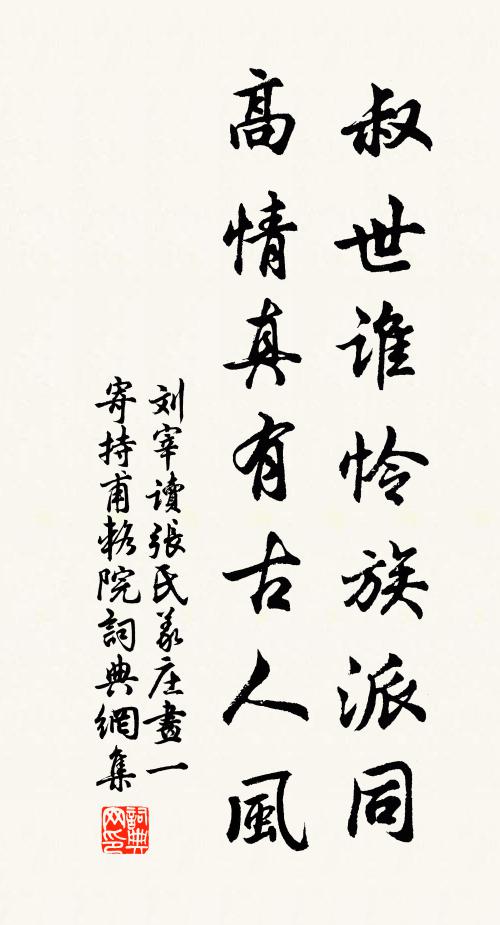 叔世谁怜族派同
高情真有古人風
刘宰讀張氏义庄畫一
寄持甫敕院詞典網集
詞典网印